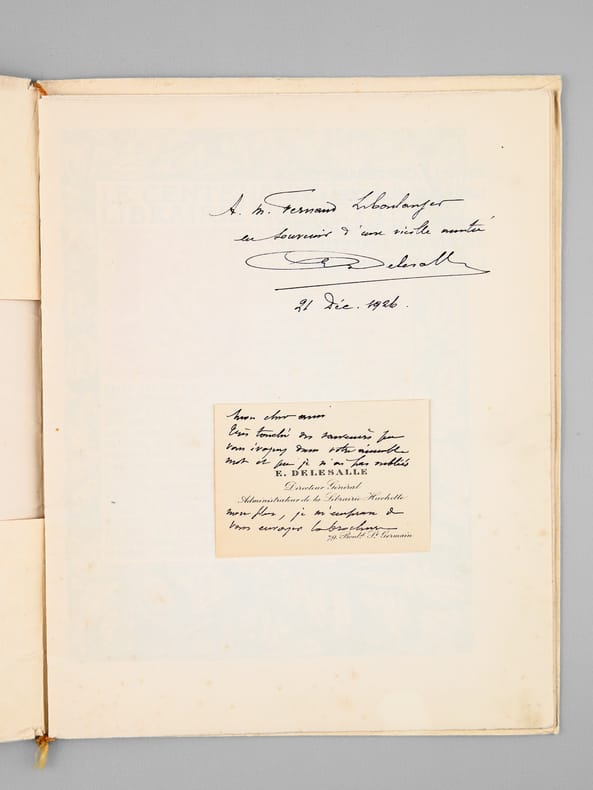 A. M. Fernand Leboulanger
en souvenir d'une vieille amitié
E. Delesalle
21 Déc. 1926.
Mon cher ami
Très touché des souvenirs que
vous évoquez dans votre aimable
mot et que je n'ai pas oubliés
E. DELESALLE
Directeur Général
Administrateur de la Librairie Hachette
non plus, je m'empresse de
vous envoyer la brochure
79, Boulᵈ Sᵗ Germain